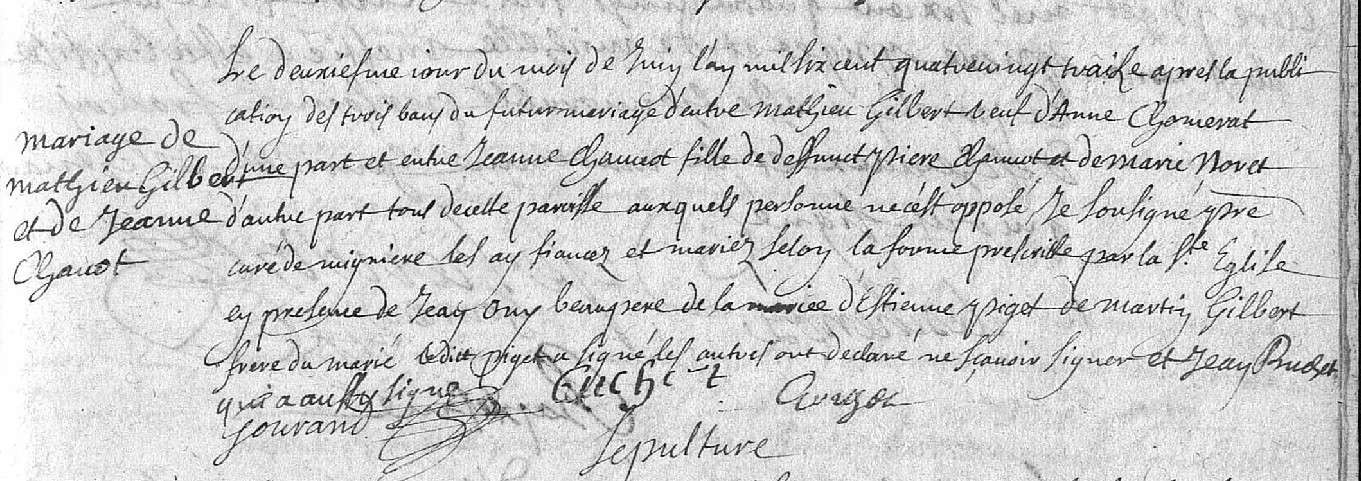 mariage de
mathieu Gilbert
et de Jeanne
Chauvot
Le deuxiesme iour du mois de Juin l'an mil six cent quatrevingt traise apres la publi
cation des trois bans du futur mariage d'entre mathieu Gilbert veuf d'Anne Chomerat
d'une part et entre Jeanne Chauvot fille de deffunct piere Chauvot et de marie Noret
d'autre part tous de cette paroisse auxquels personne ne c'est opposé Je soussigné pbre
curé de migniere les ay fiancez et mariez selon la forme prescritte par la Ste Eglise
en presence de Jean beaupere de la mariee d'Estienne piget de martin Gilbert
frere du marié ledict piget a signé les autres ont declaré ne sçavoir signer et Jean
qui a aussy signé
Sepulture